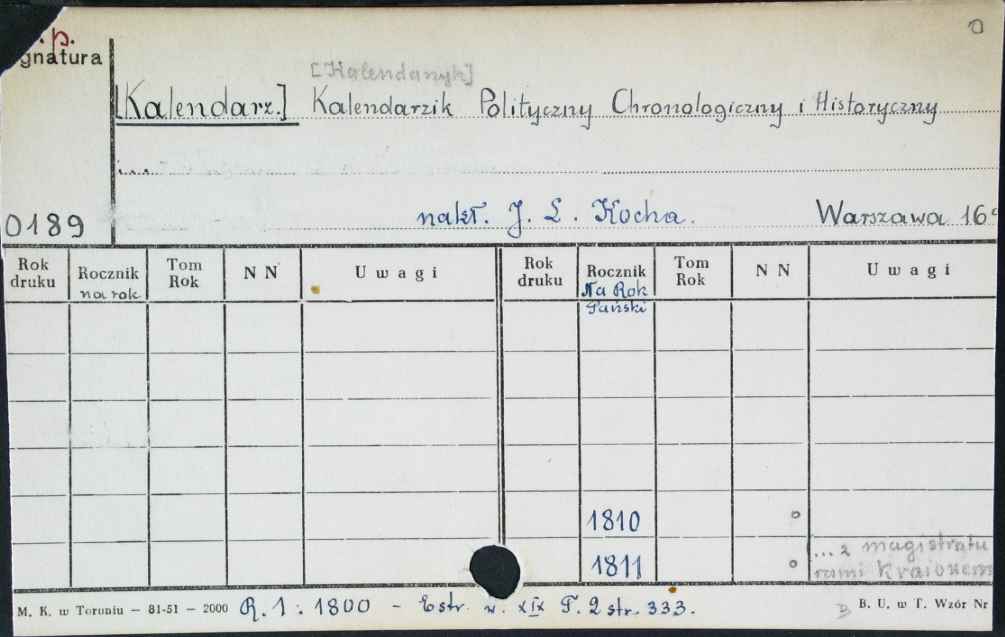 .p.
gnatura
[Kalendarzyk]
[Kalendarz.] Kalendarzik Polityczny Chronologiczny i Historyczny
i...
0189 nakł. J. L. Kocha. Warszawa 16°
Rok druku Rocznik na rok Tom Rok N N U w a g i Rok druku Rocznik Na Rok Pański Tom Rok N N U w a g i
1810 o
1811 o [... z magistratu
rami Kraiowemi
M. K. w Toruniu — 81-51 — 2000 R. 1 : 1800 - Estr. w. XIX T. 2 str. 333. B. U. w T. Wzór Nr